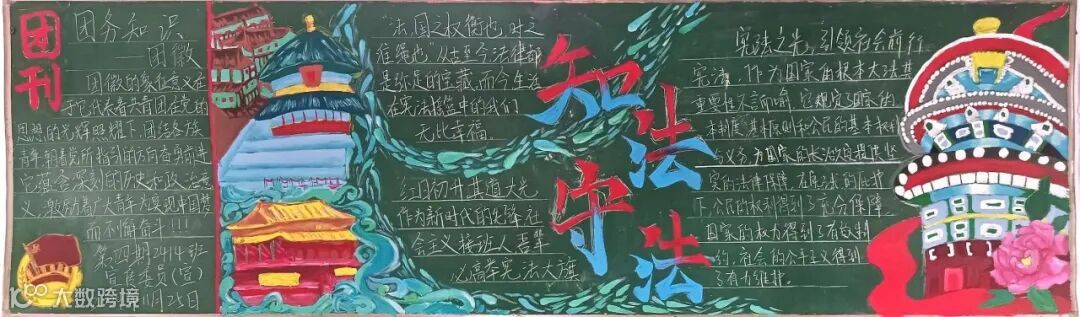 团刊
团务知识
—团徽
团徽的象征意义在
于它代表着共青团在党的
思想的光辉照耀下,团结各族
青年朝着党所指引的方向奋勇前进
它蕴含深刻的历史和政治意
义,激励着广大青年为实现中国梦
而不懈奋斗!!!
第四期2414班
宣传委员(宣)
11月25日
“法,国之权衡也,时之
准绳也”从古至今法律都
是弥足的宝藏,而今生活
在宪法
中的我们
无比幸福。
红日初升其道大光
作为新时代的先锋在
会主义接班人吾辈
必高举宪法大旗
知法
守法
宪法之光,引领社会前行
宪法,作为国家的根本大法其
重要性不言而喻,它规定了国家的
本制度、基本原则和公民的基本权利
与义务为国家的长治久安提供坚
实的法律保障,在宪法的庇护
下,公民的权利得到了充分保障
国家的权力得到了有效制
约,社会的公平主义得到
了有力维护。
大数跨境